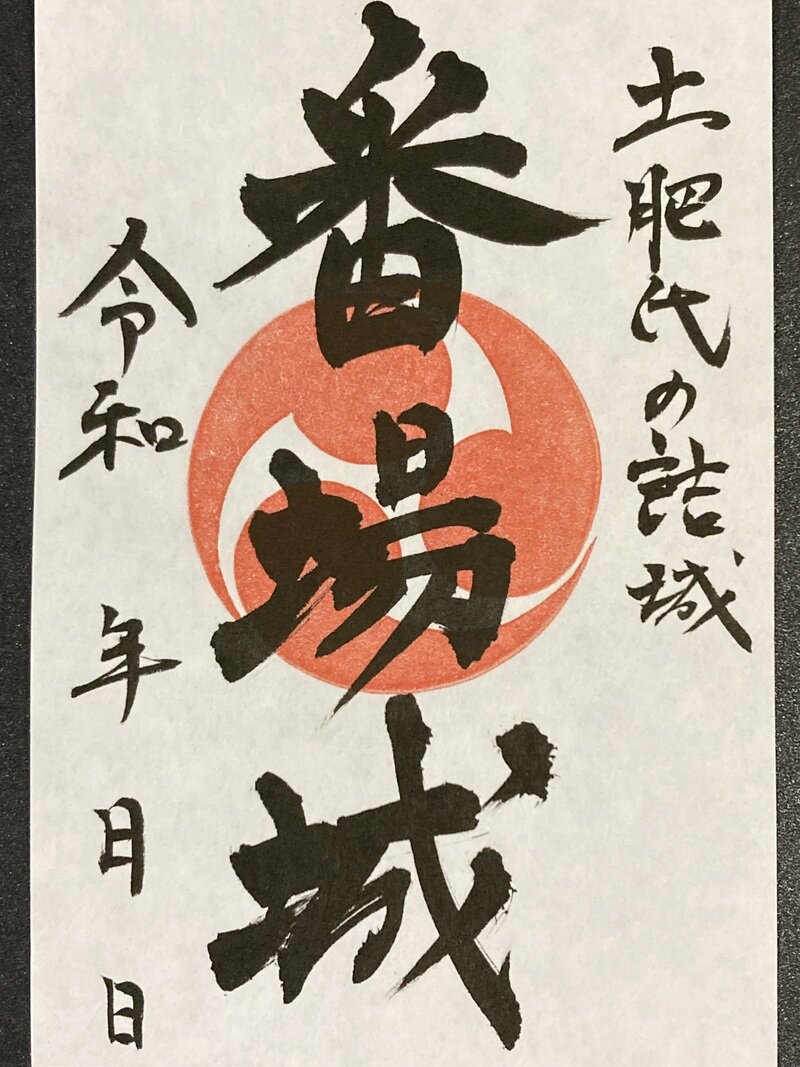 土肥氏の詰城
番場城
令和 年 月 日